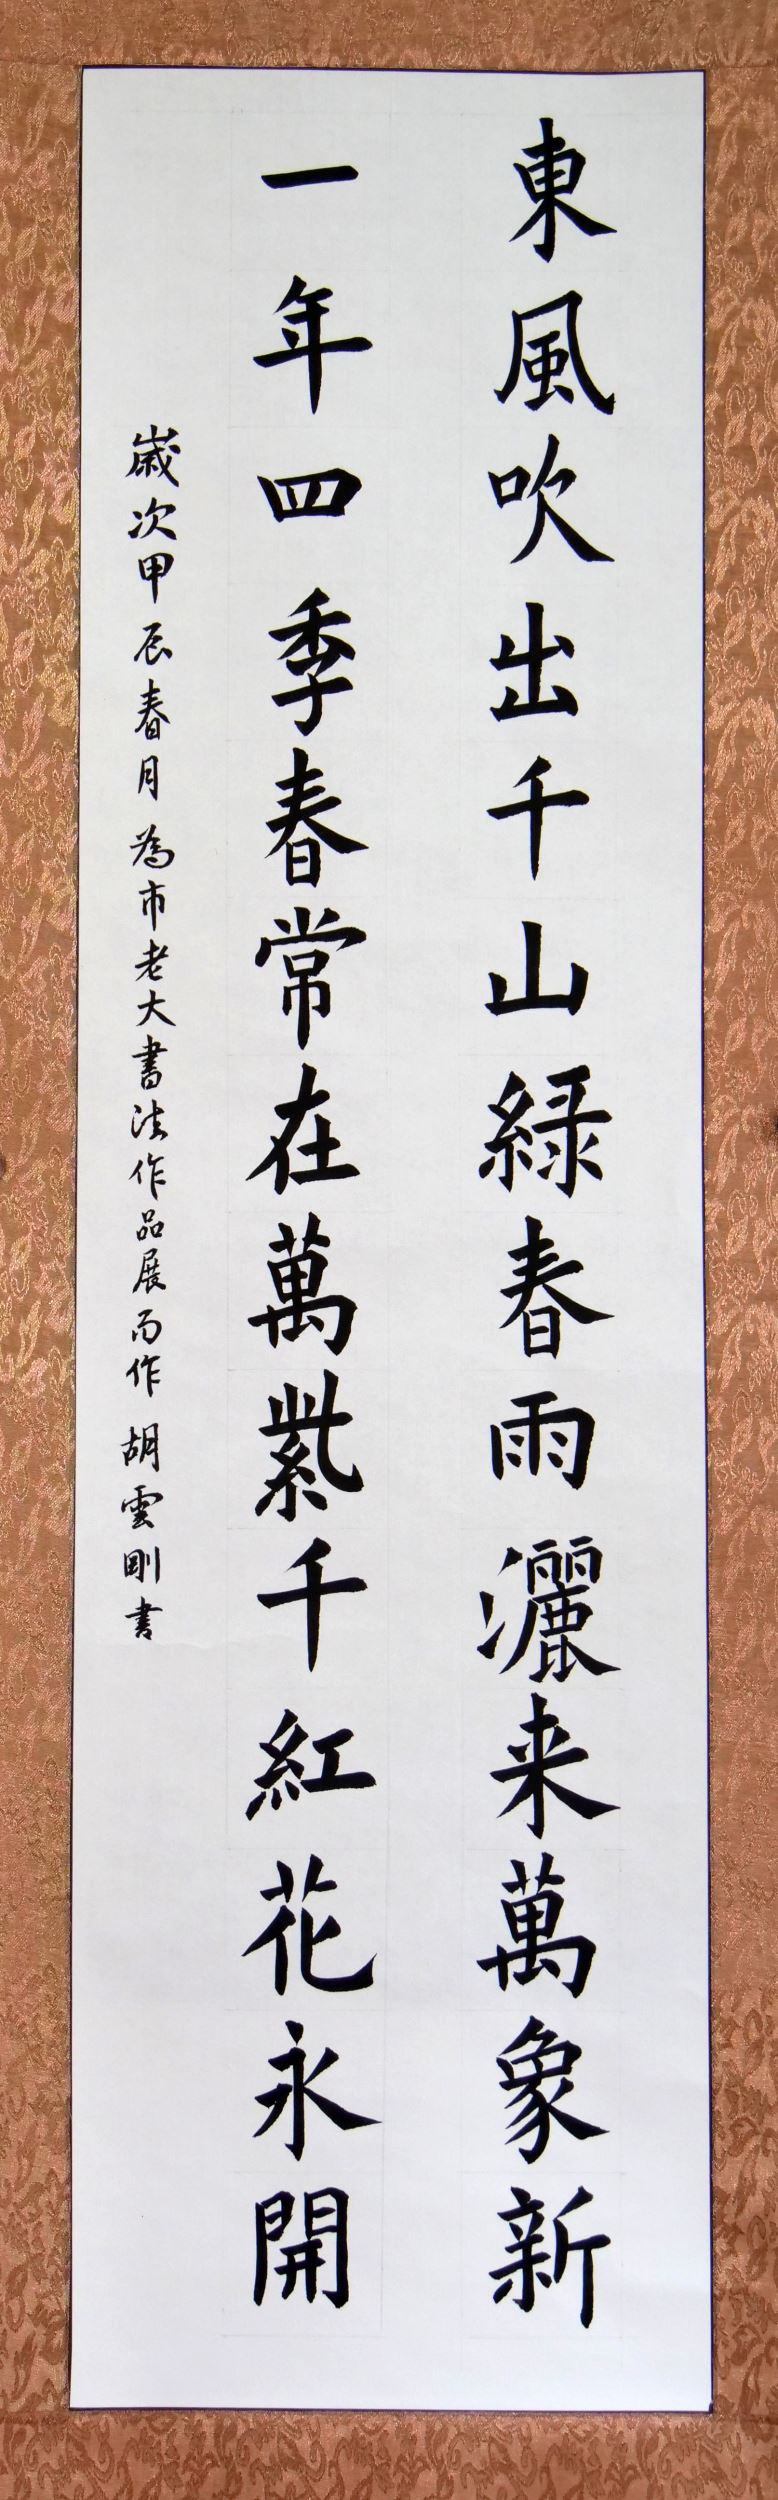 東風吹出千山緑春雨灑来萬象新
一年四季春常在萬紫千紅花永開
歲次甲辰春月為市老大書法作品展而作胡雲剛書